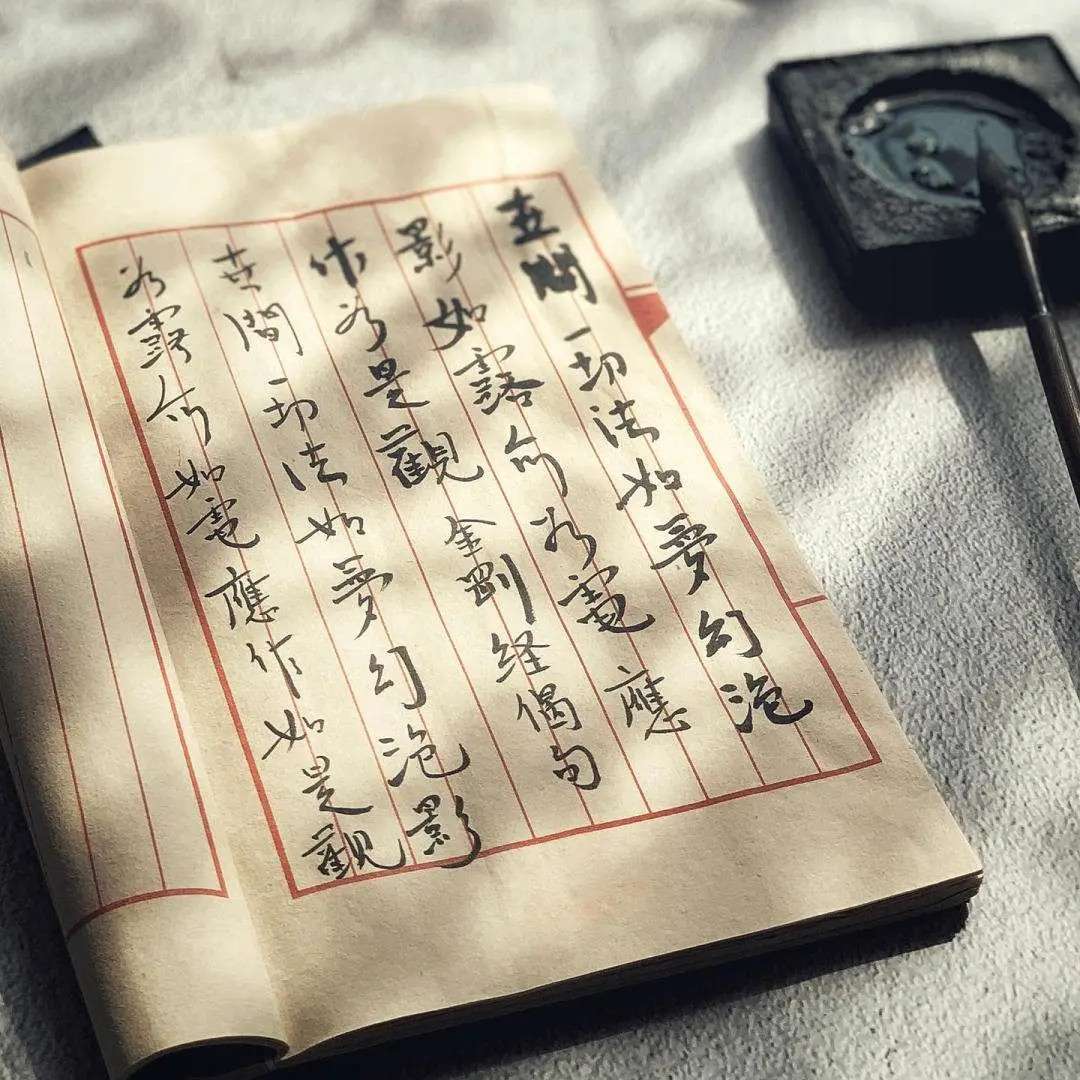 世間一切法如夢幻泡
影如露亦如電應
作如是觀 金剛経偈句
世間一切法如夢幻泡影
如露亦如電應作如是觀